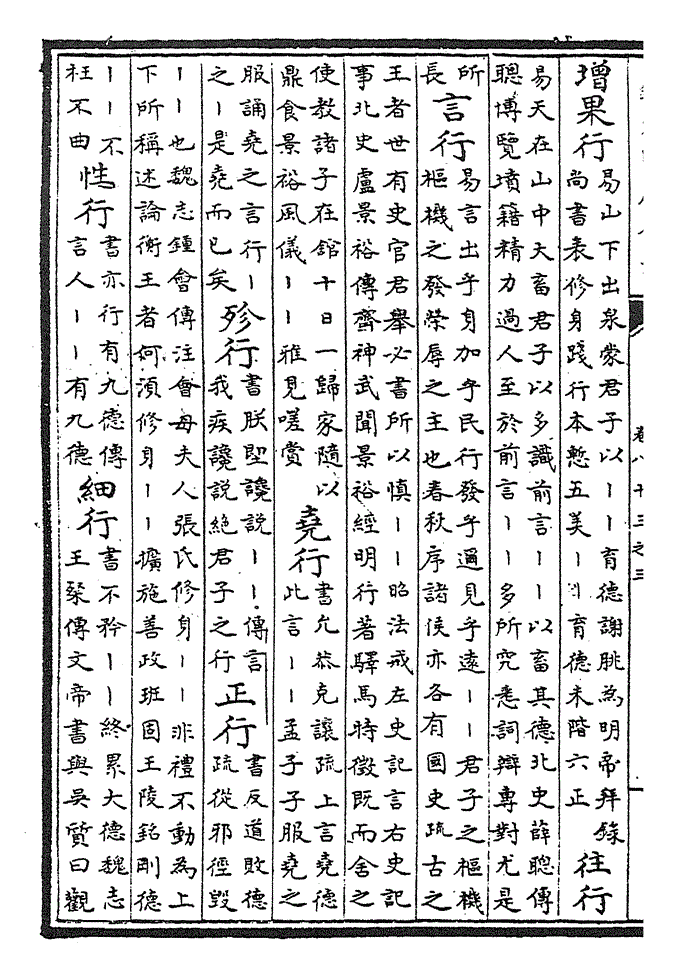 增果行易山下出泉蒙君子以丨丨育德謝朓為明帝拜錄
尚書表修身踐行本慙五美丨丨育德未階六正往行
易天在山中大畜君子以多識前言丨丨以畜其德北史薛聰傳
聰博覽墳籍精力過人至於前言丨丨多所究悉詞辯專對尤是
所
長言行易言出乎身加乎民行發乎邇見乎遠丨丨君子之樞機
樞機之發榮辱之主也春秋序諸侯亦各有國史疏古之
王者世有史官君舉必書所以慎丨丨昭法戒左史記言右史記
事北史盧景裕傳齊神武聞景裕經明行著驛馬時徵既而舍之
使教諸子在館十日一歸家隨以
鼎食景裕風儀丨丨雅見嗟賞堯行書允恭克讓疏上言堯德
此言丨丨孟子子服堯之
服誦堯之言行丨
之丨是堯而已矣殄行書朕堲讒說丨丨傳言
我疾讒說絕君子之行正行書反道敗德
疏從邪徑毀
丨丨也魏志鍾會傳注會母夫人張氏修身丨丨非禮不動為上
下所稱述論衡王者何須修身丨丨擴施善政班固王陵銘剛德
丨丨不
枉不曲性行書亦行有九德傳
言人丨丨有九德細行書不矜丨丨終累大德魏志
王粲傳文帝書與吳質曰觀
卷八十三之三